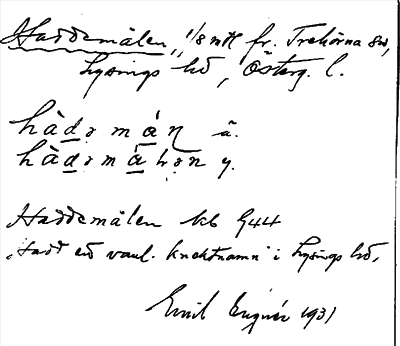 Haddemålen, 1/8 mtl fr. Trehörna sn,
Lysings hd, Österg. l.
hàdə máɳ ä.
hàdəmálən y.
Haddemålen kb 944
"Hadd en vanl. knektnamn" i Lysings hd.
Emil 1931